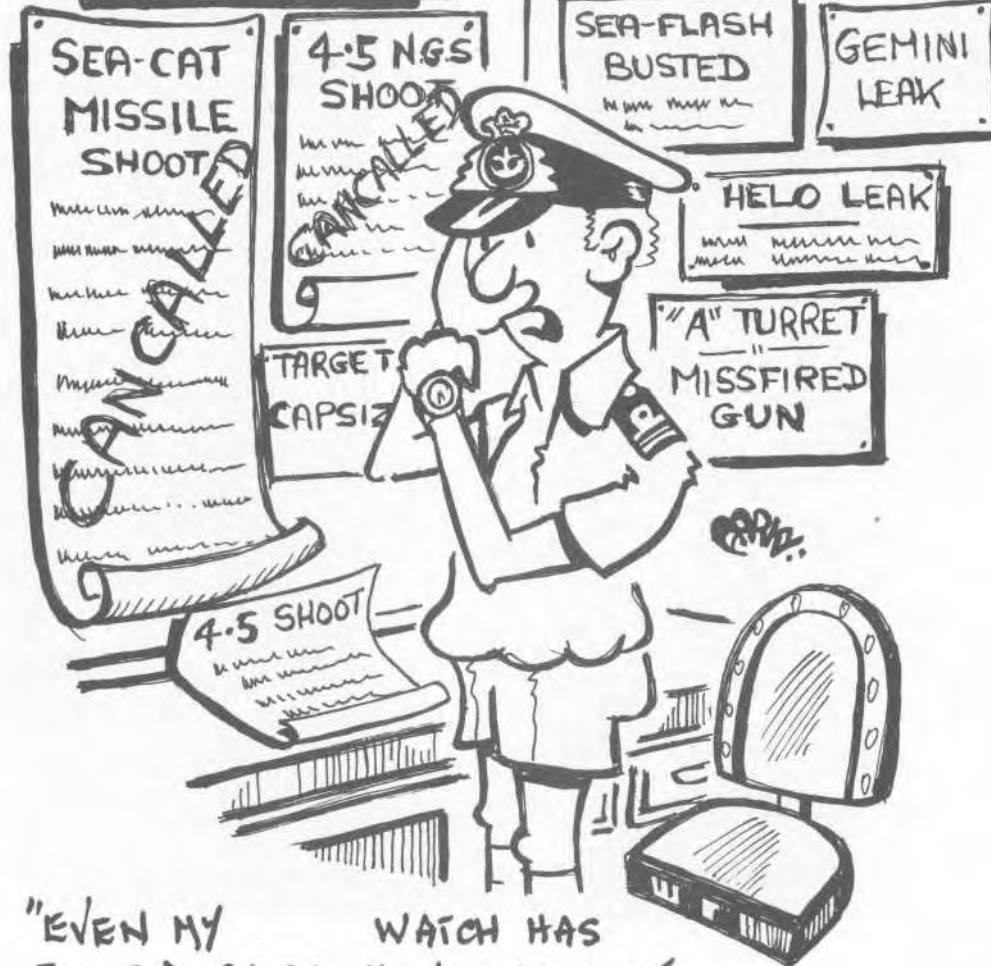 SEA-CAT
MISSILE
SHOOT
CANCALLED
4.5 N.G.S
SHOOT
CANCALLED
SEA-FLASH
BUSTED
GEMINI
LEAK
HELO LEAK
"A" TURRET
MISSFIRED
GUN
TARGET
CAPSIZ
4.5 SHOOT
"EVEN MY WATCH HAS